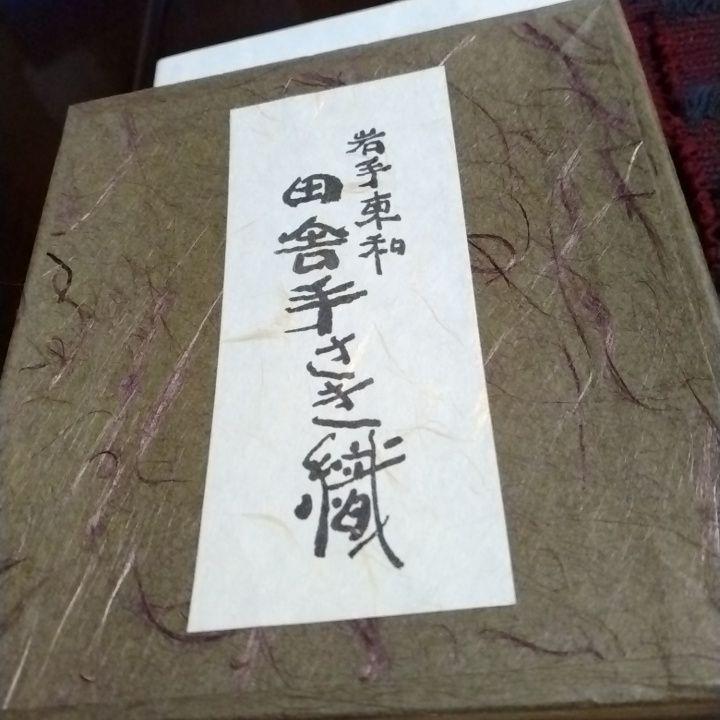 岩手東和
田舎手さき織